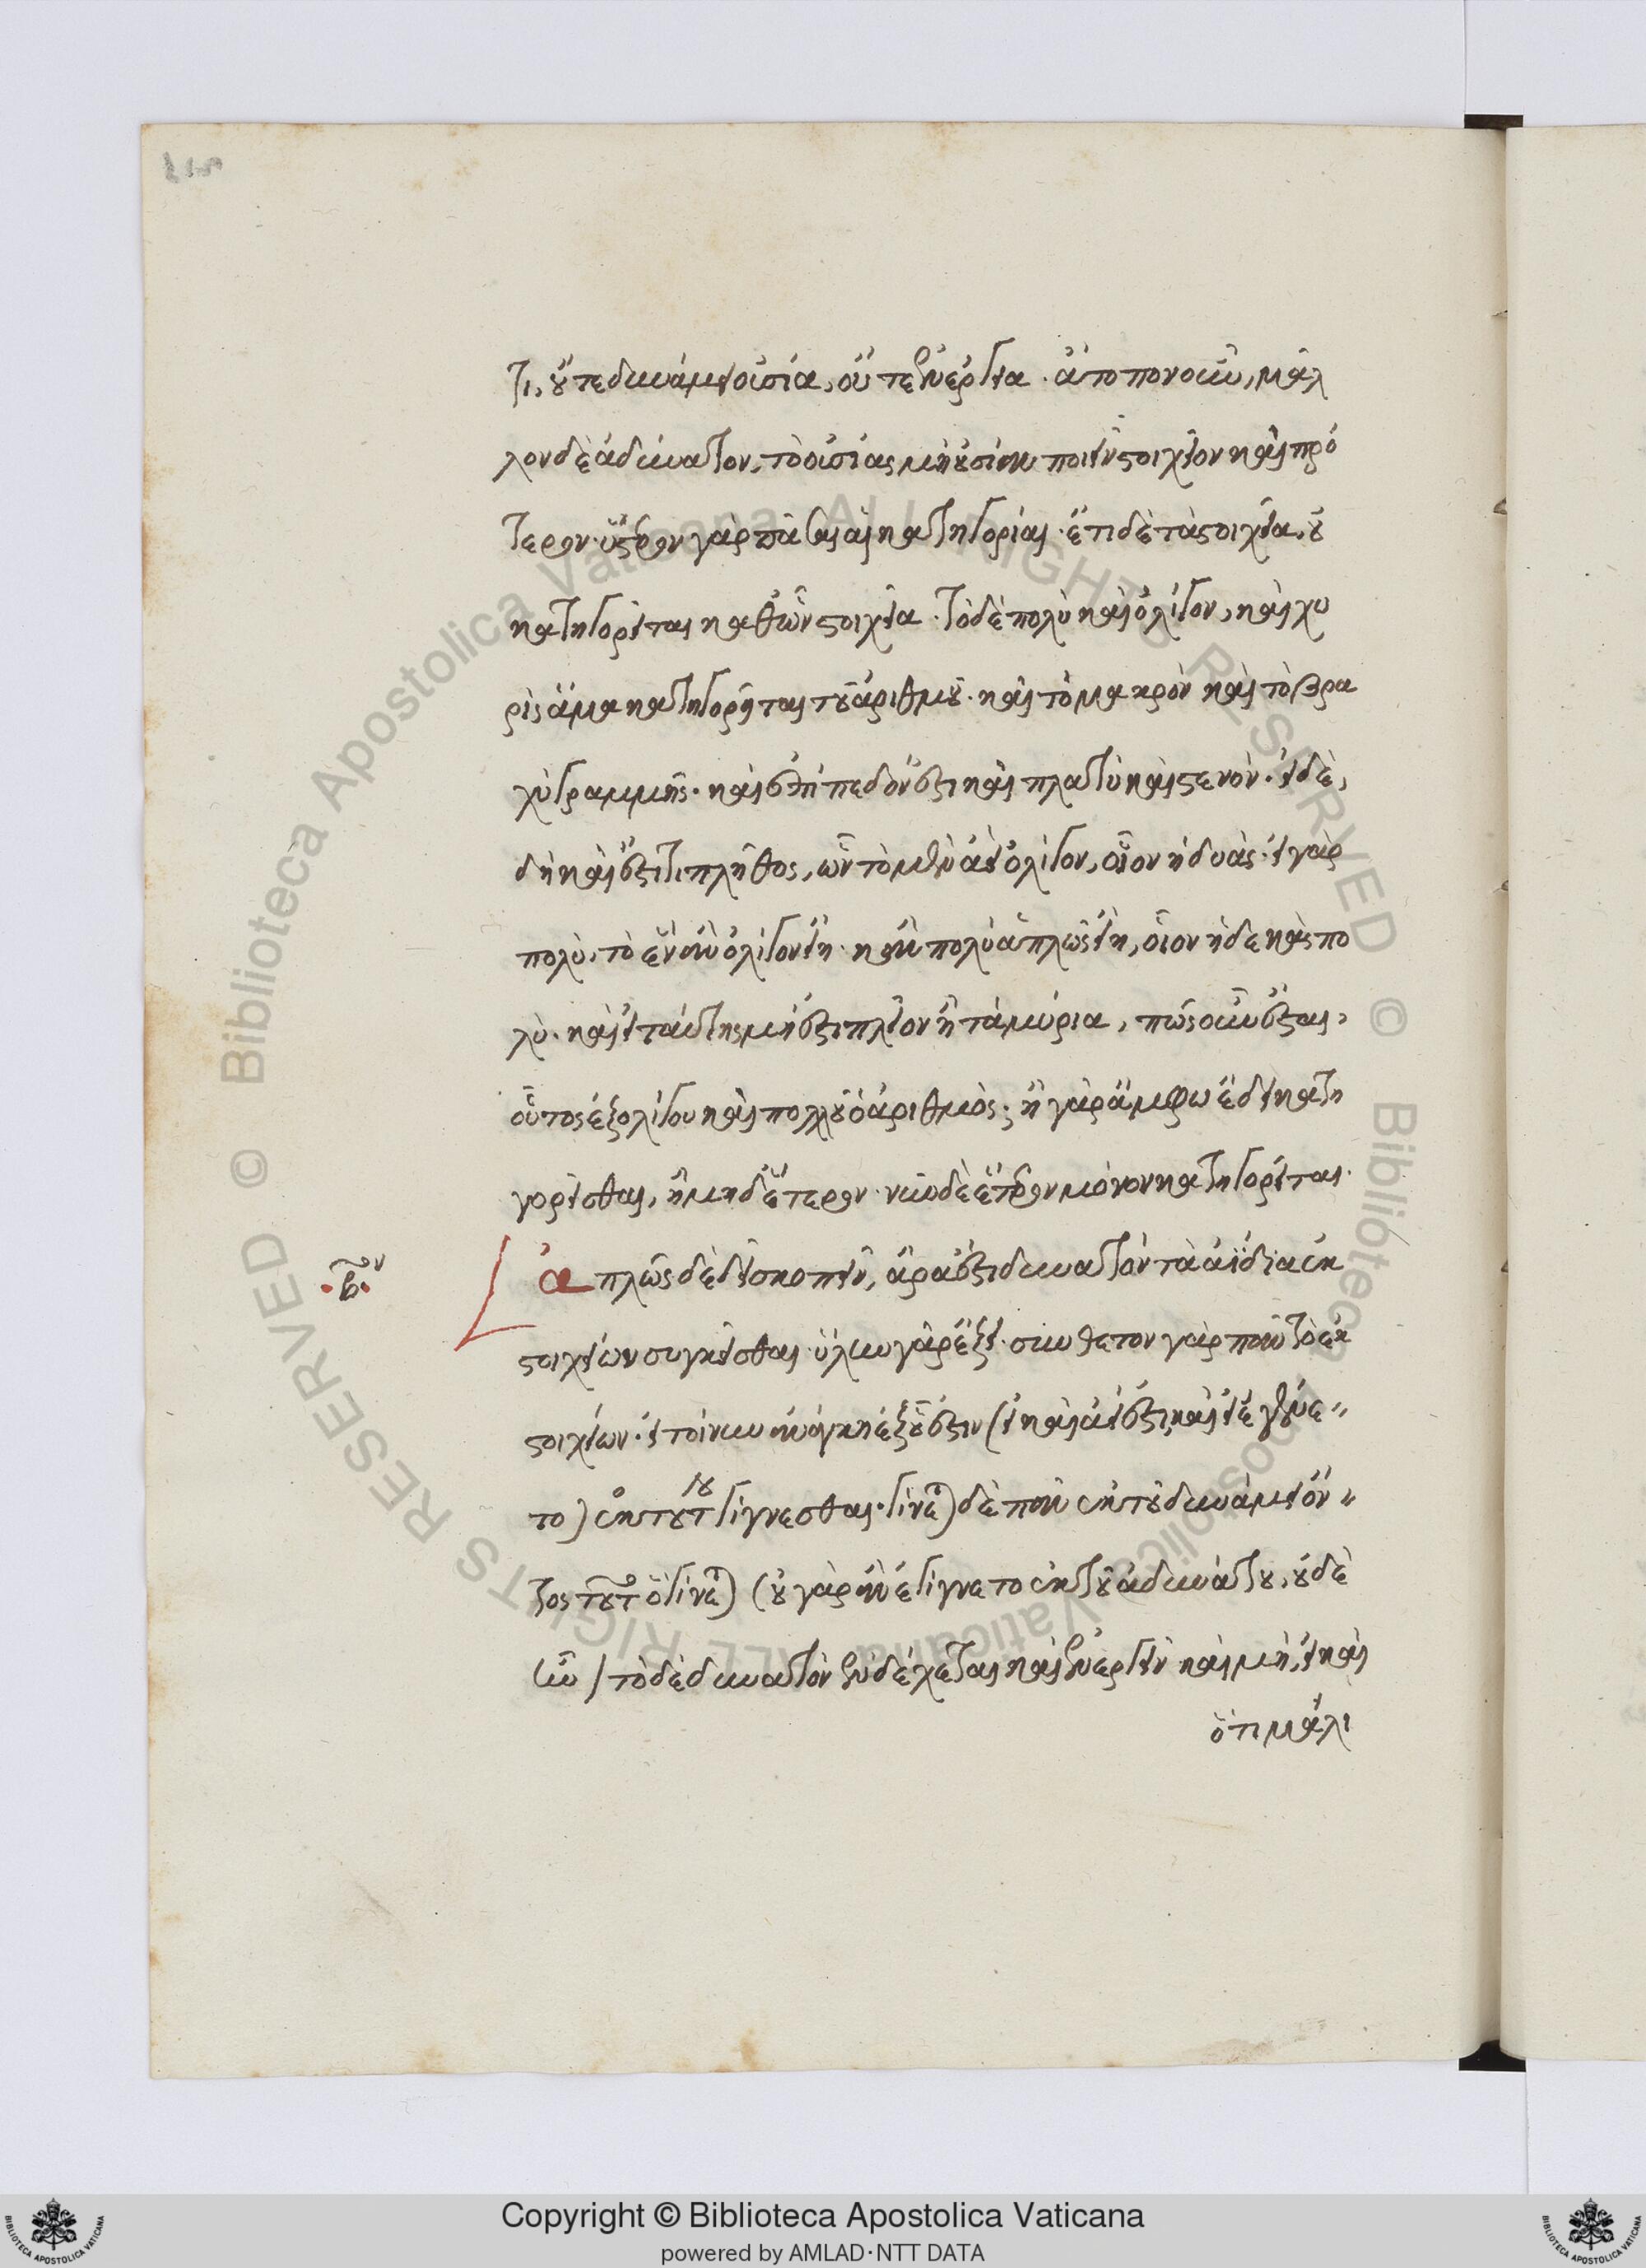 τι, οὔτε δυνάμει οὐσία, οὔτε ἐνεργείᾳ. ἄτοπον οὖν, μᾶλ
λον δὲ ἀδύνατον, τὸ οὐσίας μὴ οὐσίαν ποιεῖν στοιχεῖον καὶ πρό
τερον. ὕστερον γὰρ πᾶσαι αἱ κατηγορίαι. ἔτι δὲ τὰ στοιχεῖα, οὐ
κατηγορεῖται καθ' ὧν στοιχεῖα. τὸ δὲ πολὺ καὶ ὀλίγον, καὶ χω
ρὶς ἅμα κατηγορεῖται τοῦ ἀριθμοῦ. καὶ τὸ μακρὸν καὶ τὸ βρα
χὺ γραμμῆς. καὶ ἐπίπεδόν ἐστι καὶ πλατὺ καὶ στενόν. εἰ δὲ,
δὴ καὶ ἔστι τι πλῆθος, ὧν τὸ μὲν ἀεὶ ὀλίγον, οἷον ἡ δυάς. εἰ γὰρ
πολὺ, τὸ ἓν ἂν ὀλίγον εἴη. κἂν πολὺ ἁπλῶς εἴη, οἷον ἡ δεκὰς πο
λὺ. καὶ εἰ ταύτης μή ἐστι πλεῖον ἢ τὰ μύρια, πῶς οὖν ἔσται,
οὗτος ἐξ ὀλίγου καὶ πολλοῦ ὁ ἀριθμός. ἢ γὰρ ἄμφω ἔδει κατη
γορεῖσθαι, ἢ μηδέτερον. νῦν δὲ ἕτερον μόνον κατηγορεῖται.
.β.ον
ἁπλῶς δὲ δεῖ σκοπεῖν, ἆρα ἐστὶ δυνατὸν τὰ ἀΐδια ἐκ
στοιχείων συγκεῖσθαι. ὕλην γὰρ ἕξει. σύνθετον γὰρ πᾶν τὸ ἐκ
στοιχείων. εἰ τοίνυν ἀνάγκη ἐξ οὗ ἐστιν (εἰ καὶ ἀεί ἐστι, καὶ εἰ ἐγένε
το) ἐκ τούτου γίγνεσθαι. γίνεται δὲ πᾶν ἐκ τοῦ δυνάμει ὄν
τος τοῦτο ὃ γίνεται (οὐ γὰρ ἂν ἐγίγνετο ἐκ τοῦ ἀδυνάτου, οὐδὲ
ἦν) τὸ δὲ δυνατὸν ἐνδέχεται καὶ ἐνεργεῖν καὶ μή, εἰ καὶ
ὅτι μάλι
Copyright © Biblioteca Apostolica Vaticana
powered by AMLAD·NTT DATA